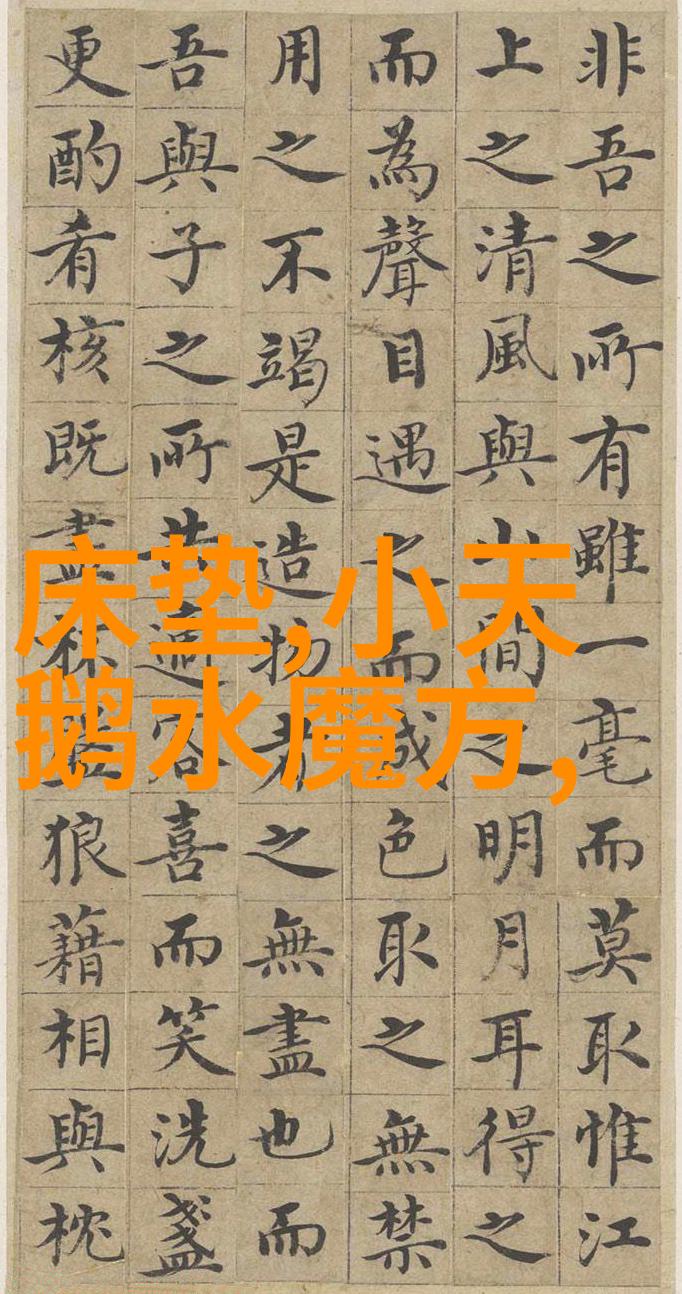 非吾之所有雖一毫而莫取惟江
上之清風與山間之明月耳得之
而為聲目遇之而成色取之無禁
用之不竭是造物者之無盡也而
吾與子之所共適客喜而笑洗盞
更酌肴核既盡杯盤狼藉相與枕
床垫,小天
鹅水魔方,